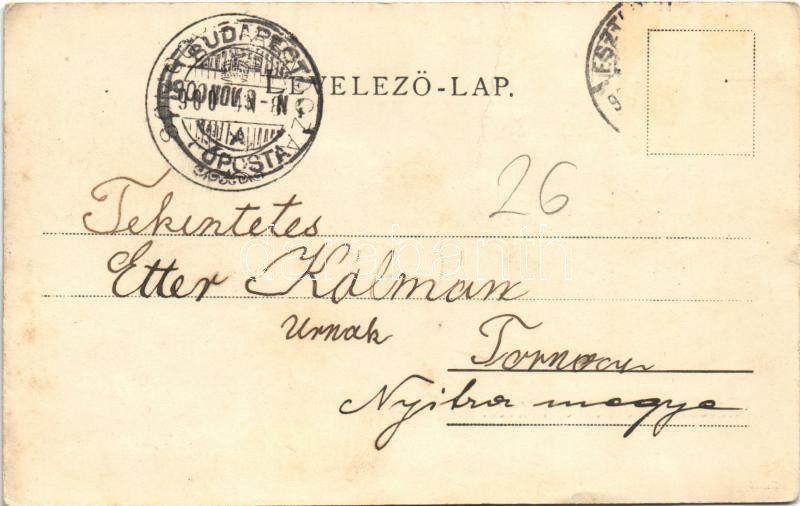 BUDAPEST
FŐPOSTA
LEVELEZŐ-LAP.
ESZT
26
Tekintetes
Etter Kálmán
Urnak
Tornocz
Nyitra megye